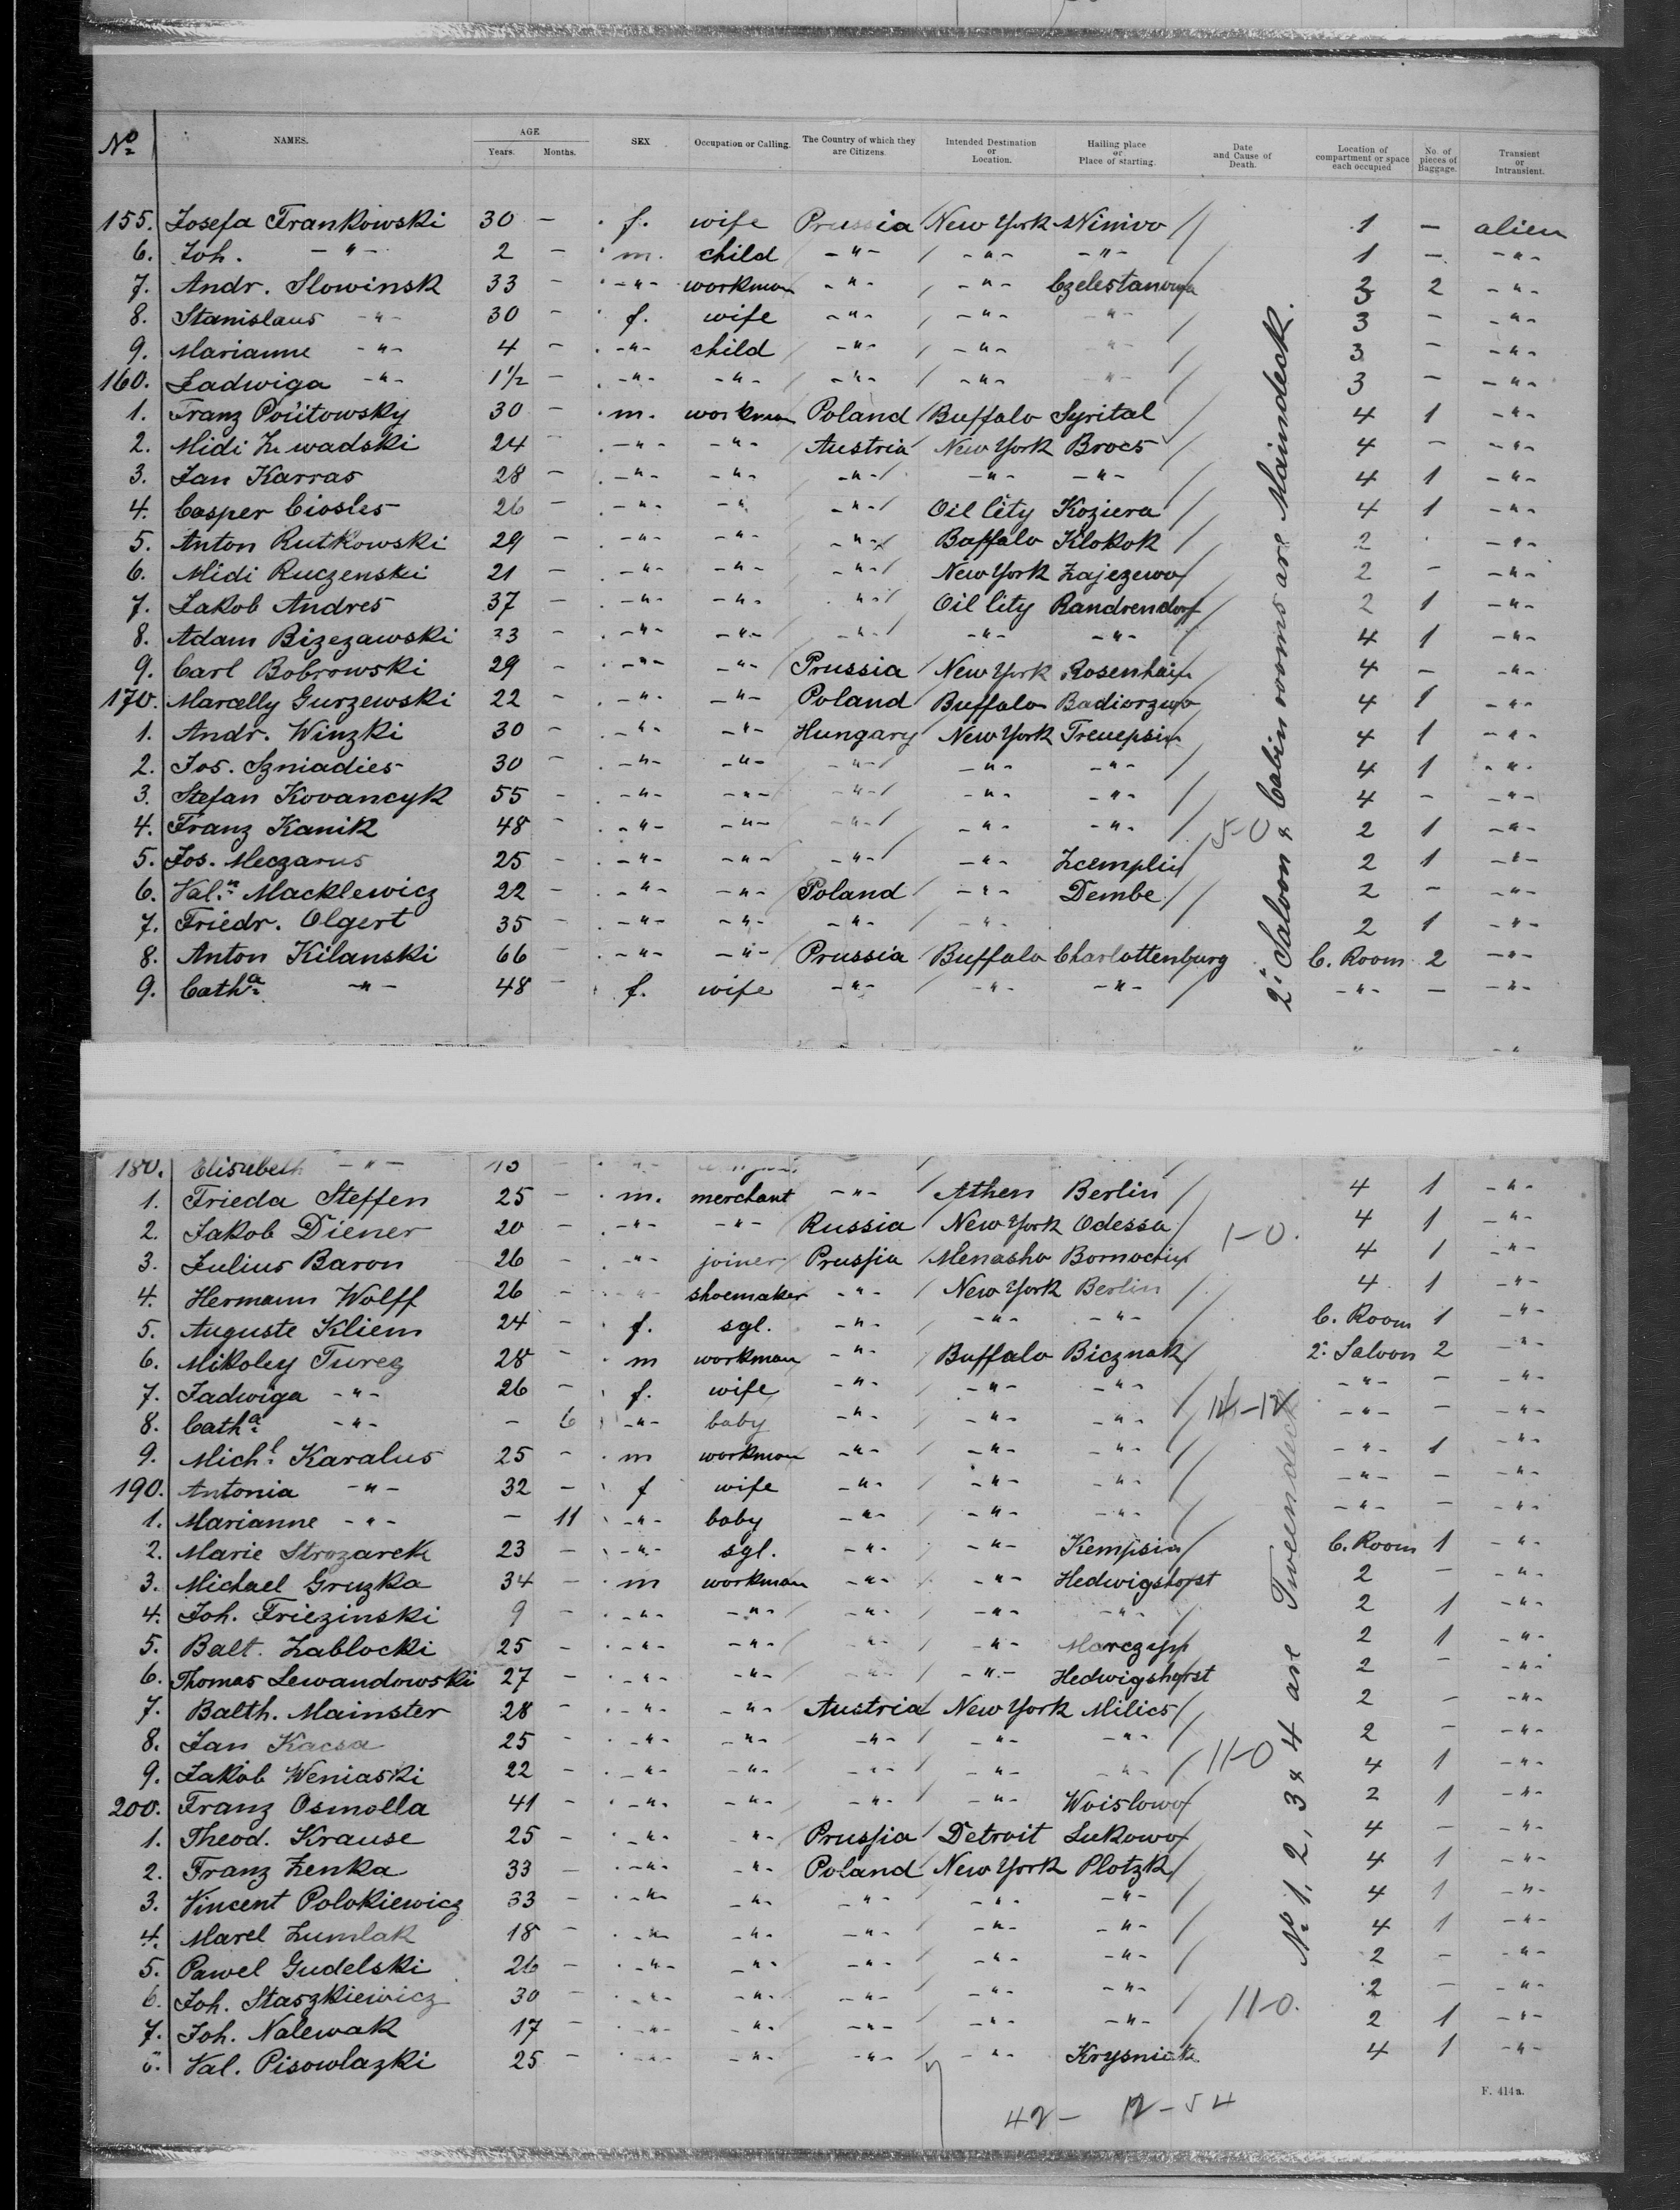 No NAMES. AGE SEX Occupation or Calling. The Country of which they are Citizens. Intended Destination or Location. Hailing place or Place of starting. Date and Cause of Death. Location of compartment or space each occupied No. of pieces of Baggage. Transient or Intransient.
Years. Months.
155. Josefa Frankowski 30 - f. wife Prussia New York Winiwo 1 - alien
6. Joh. -"- 2 - m. child -"- -"- -"- 1 - -"-
7. Andr. Slowinsk 33 - -"- workman -"- -"- 3 2 -"-
8. Stanislaus -"- 30 - f. wife -"- -"- -"- 3 - -"-
9. Marianne -"- 4 - -"- child -"- -"- -"- 3 - -"-
160. Jadwiga -"- 1½ - -"- -"- -"- -"- -"- 3 - -"-
1. Franz 30 - m. workman Poland Buffalo Syrital 4 1 -"-
2. Midi 24 - -"- -"- Austria New York Brocs 4 - -"-
3. Jan Karras 28 - -"- -"- -"- -"- -"- 4 1 -"-
4. Casper Ciosles 26 - -"- -"- -"- Oil City Koziera 4 1 -"-
5. Anton Rutkowski 29 - -"- -"- -"- Buffalo Klokok 2 -"-
6. Midi Ruczenski 21 - -"- -"- -"- New York Zajezewo 2 - -"-
7. Jakob Andres 37 - -"- -"- -"- Oil City Randrendorf 2 1 -"-
8. Adam Bizezawski 33 - -"- -"- -"- -"- -"- 4 1 -"-
9. Carl Bobrowski 29 - -"- -"- Prussia New York Rosenhain 4 - -"-
170. Marcelly Gurzewski 22 - -"- -"- Poland Buffalo Badiorzewo 4 1 -"-
1. Andr. Winzki 30 - -"- -"- Hungary New York 4 1 -"-
2. Jos. Szniadies 30 - -"- -"- -"- -"- -"- 4 1 -"-
3. Stefan Kovancyk 55 - -"- -"- -"- -"- -"- 4 - -"-
4. Franz Kanik 48 - -"- -"- -"- -"- -"- 5-0 2 1 -"-
5. Jos. Meczarus 25 - -"- -"- -"- -"- Zcemplin 2 1 -"-
6. Val.n Macklewicz 22 - -"- -"- Poland -"- Dembe 2 - -"-
7. Friedr. Olgert 35 - -"- -"- -"- -"- 2 1 -"-
8. Anton Kilanski 66 - -"- -"- Prussia Buffalo Charlottenburg C. Room 2 -"-
9. Cath.a -"- 48 - f. wife -"- -"- -"- -"- - -"-
2.' Saloon & Cabin rooms are Maindeck.
180. Elisabeth -"-
1. Frieda Steffen 25 - m. merchant -"- Athen Berlin 4 1 -"-
2. Jakob Diener 20 - -"- -"- Russia New York Odessa 1-0. 4 1 -"-
3. Julius Baron 26 - -"- joiner Prussia Menasha 4 1 -"-
4. Hermann Wolff 26 - -"- shoemaker -"- New York Berlin 4 1 -"-
5. Auguste Kliem 24 - f. sgl. -"- -"- -"- C. Room 1 -"-
6. Mikoley Tureg 28 - m workman -"- Buffalo Bicznak 2.' Saloon 2 -"-
7. Jadwiga -"- 26 - f. wife -"- -"- -"- -"- - -"-
8. Cath.a -"- - 6 -"- baby -"- -"- -"- -"- - -"-
9. Mich.l Karalus 25 - m workman -"- -"- -"- -"- 1 -"-
190. Antonia -"- 32 - f wife -"- -"- -"- -"- - -"-
1. Marianne -"- - 11 -"- baby -"- -"- -"- -"- - -"-
2. Marie Strozarek 23 - -"- sgl. -"- -"- Kempsin C. Room 1 -"-
3. Michael Gruzka 34 - m workman -"- -"- Hedwigshorst 2 - -"-
4. Joh. Friezinski 9 - -"- -"- -"- -"- -"- 2 1 -"-
5. Balt. Zablocki 25 - -"- -"- -"- -"- 2 1 -"-
6. Thomas Lewandowski 27 - -"- -"- -"- -"- Hedwigshorst 2 - -"-
7. Balth. Mainster 28 - -"- -"- Austria New York Milics 2 - -"-
8. Jan Kacsa 25 - -"- -"- -"- -"- -"- 2 - -"-
9. Jakob Weniaski 22 - -"- -"- -"- -"- -"- 11-0 4 1 -"-
200. Franz Osmolla 41 - -"- -"- -"- -"- Woislowo 2 1 -"-
1. Theod. Krause 25 - -"- -"- Prussia Detroit Lukowo 4 - -"-
2. Franz Zenka 33 - -"- -"- Poland New York Plotzk 4 1 -"-
3. Vincent Polokiewicz 33 - -"- -"- -"- -"- -"- 4 1 -"-
4. Marel Zumlak 18 - -"- -"- -"- -"- -"- 4 1 -"-
5. Pawel Gudelski 26 - -"- -"- -"- -"- -"- 2 - -"-
6. Joh. Staszkiewicz 30 - -"- -"- -"- -"- -"- 2 - -"-
7. Joh. Nalewak 17 - -"- -"- -"- -"- -"- 11-0. 2 1 -"-
8. Val. Pisowlazki 25 - -"- -"- -"- -"- 4 1 -"-
No 1, 2, 3 & 4 are Tweendeck
F. 414a.
42 - 12 - 54